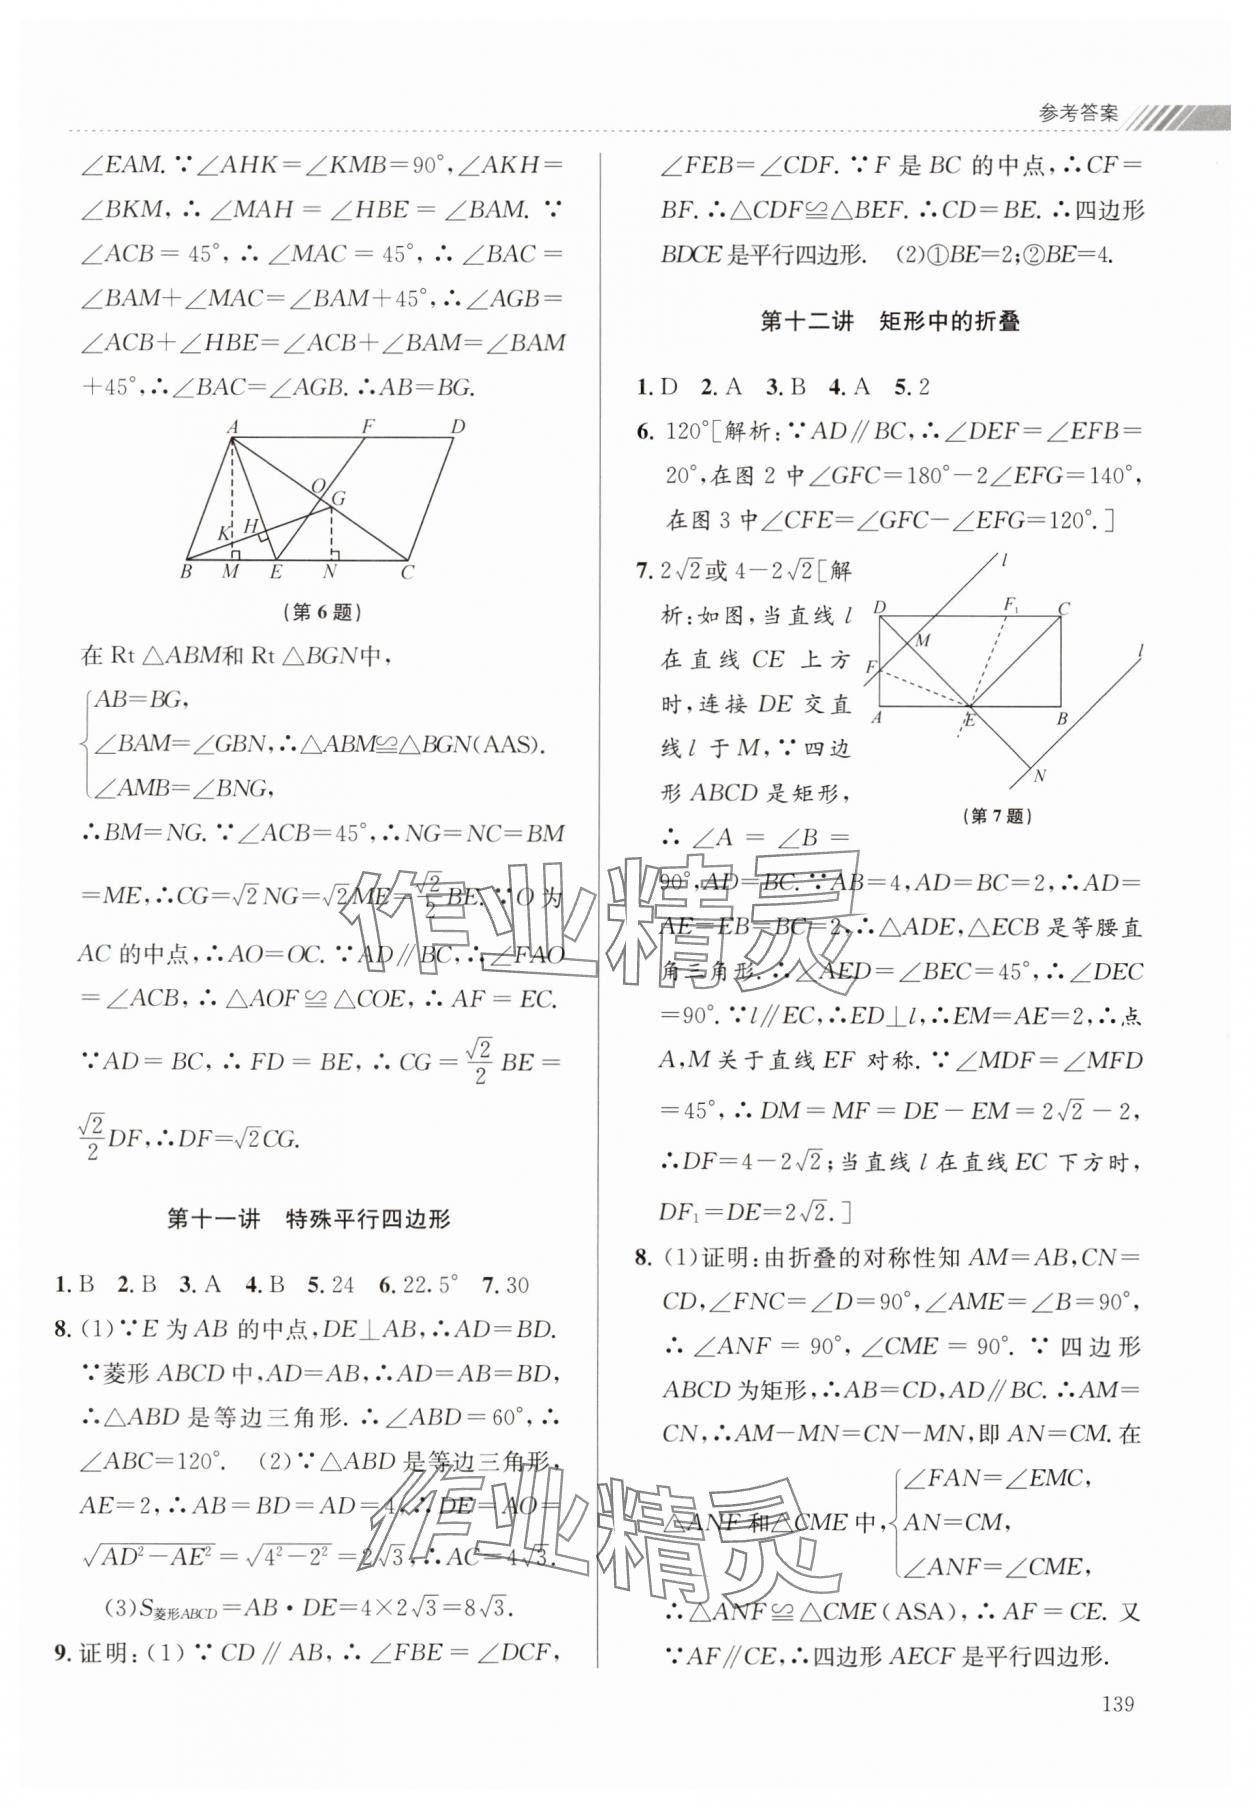 参考答案
∠EAM.∵∠AHK=∠KMB=90°,∠AKH=
∠BKM,∴∠MAH=∠HBE=∠BAM.∵
∠ACB=45°,∴∠MAC=45°,∴∠BAC=
∠BAM+∠MAC=∠BAM+45°,∴∠AGB=
∠ACB+∠HBE=∠ACB+∠BAM=∠BAM
+45°,∴∠BAC=∠AGB.∴AB=BG.
A F D
O
G
K H
B M E N C
(第6题)
在 Rt△ABM和 Rt△BGN中,
AB=BG,
∠BAM=∠GBN,∴△ABM≌△BGN(AAS).
∠AMB=∠BNG,
∴BM=NG.∵∠ACB=45°,∴NG=NC=BM
=ME,∴CG=√2NG=√2ME=√2/2BE.∵O为
AC的中点,∴AO=OC.∵AD∥BC,∴∠FAO
=∠ACB,∴△AOF≌△COE,∴AF=EC.
∵AD=BC,∴FD=BE,∴CG=√2/2BE=
√2/2DF,∴DF=√2CG.
第十一讲 特殊平行四边形
1.B 2.B 3.A 4.B 5.24 6.22.5° 7.30
8.(1)∵E为AB的中点,DE⊥AB,∴AD=BD.
∵菱形ABCD中,AD=AB,∴AD=AB=BD,
∴△ABD是等边三角形.∴∠ABD=60°,∴
∠ABC=120°. (2)∵△ABD是等边三角形,
AE=2,∴AB=BD=AD=4,∴DE=AO=
√(AD²-AE²)=√(4²-2²)=2√3,∴AC=4√3.
(3)S菱形ABCD=AB·DE=4×2√3=8√3.
9.证明:(1)∵CD∥AB,∴∠FBE=∠DCF,
∠FEB=∠CDF.∵F是BC的中点,∴CF=
BF.∴△CDF≌△BEF.∴CD=BE.∴四边形
BDCE是平行四边形. (2)①BE=2;②BE=4.
第十二讲 矩形中的折叠
1.D 2.A 3.B 4.A 5.2
6.120°[解析:∵AD∥BC,∴∠DEF=∠EFB=
20°,在图2中∠GFC=180°-2∠EFG=140°,
在图3中∠CFE=∠GFC-∠EFG=120°.]
7.2√2或4-2√2[解
析:如图,当直线l
在直线CE上方
时,连接DE交直
线l于M,∵四边
形ABCD是矩形,
∴∠A=∠B=
l
D F₁ C
M
F l
A E B
N
(第7题)
90°,AD=BC.∵AB=4,AD=BC=2,∴AD=
AE=EB=BC=2,∴△ADE,△ECB是等腰直
角三角形.∴∠AED=∠BEC=45°,∴∠DEC
=90°.∵l∥EC,∴ED⊥l,∴EM=AE=2,∴点
A,M关于直线EF对称.∵∠MDF=∠MFD
=45°,∴DM=MF=DE-EM=2√2-2,
∴DF=4-2√2;当直线l在直线EC下方时,
DF₁=DE=2√2.]
8.(1)证明:由折叠的对称性知AM=AB,CN=
CD,∠FNC=∠D=90°,∠AME=∠B=90°,
∴∠ANF=90°,∠CME=90°.∵四边形
ABCD为矩形,∴AB=CD,AD∥BC.∴AM=
CN,∴AM-MN=CN-MN,即AN=CM.在
∠FAN=∠EMC,
△ANF和△CME中,AN=CM,
∠ANF=∠CME,
∴△ANF≌△CME(ASA),∴AF=CE.又
∵AF∥CE,∴四边形AECF是平行四边形.
139
作业精灵
作业精灵